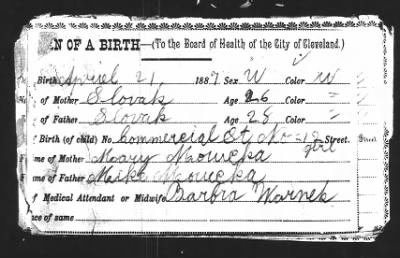 N OF A BIRTH—(To the Board of Health of the City of Cleveland.)
Birth April 21 1887 Sex W Color W
of Mother Slovak Age 26 Color "
of Father Slovak Age 28 Color "
f Birth (of child) No. Commercial St No = 18 Street. Street.
girl
me of Mother Mary
me of Father Maika
f Medical Attendant or Midwife Barbra Warnek
nce of same